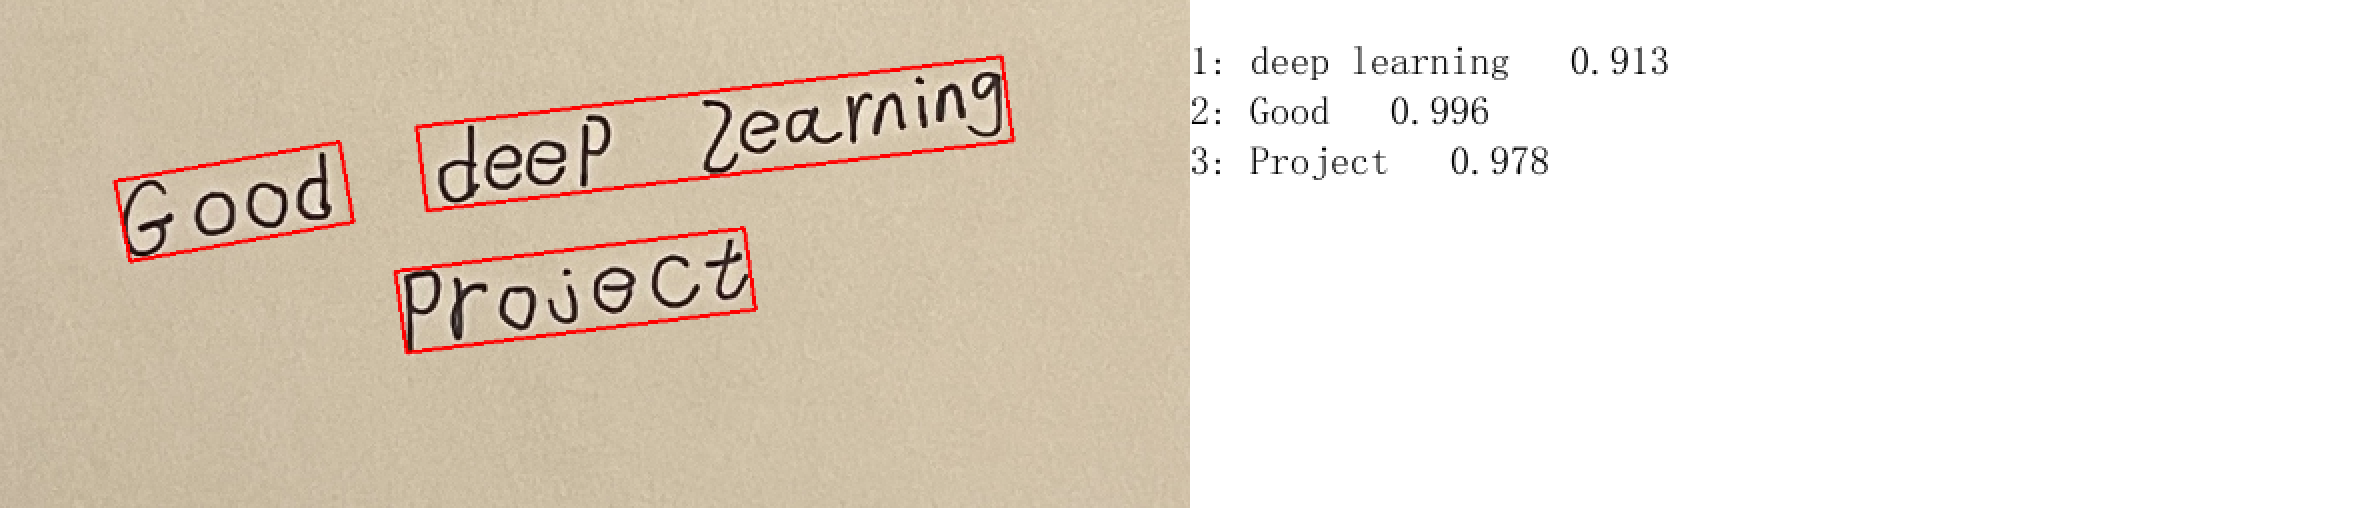 Good deep learning
Project
1: deep learning 0.913
2: Good 0.996
3: Project 0.978